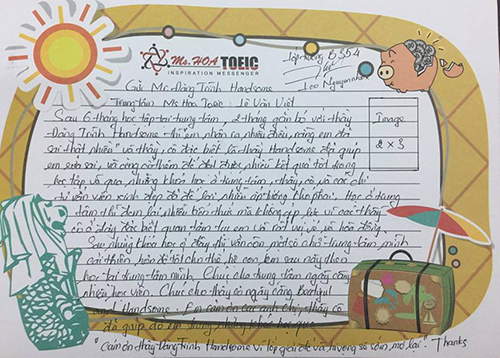 Ms.HOA TOEIC
INSPIRATION MESSENGER
Lớp B354
Leo Nguyen
Gửi Mr. Đăng Trình Handsome
Trung tâm Ms Hoa Toeic: Lê Văn Việt
Sau 6 tháng học tập tại trung tâm, 2 tháng gắn bó với thầy
Đăng Trình Handsome thì em nhận ra nhiều điều, rằng em đã
sai thật nhiều và thầy, cô đặc biệt là thầy Handsome đã giúp
em sửa sai, và công cụ thêm để đạt được nhiều kết quả tốt trong
học tập và qua những khóa học ở trung tâm, thầy cô và các chị
tư vấn viên xinh đẹp đã để lại nhiều ấn tượng. Học ở trung
tâm thì đem lại nhiều kiến thức mà không áp lực vì các thầy
cô ở đây đặc biệt quan tâm tụi em và rất vui vẻ và hòa đồng.
Sau những khóa học ở đây thì vẫn còn một số chỗ trung tâm mình
cải thiện, hơn để tốt cho thế hệ con em sau này theo
học tại trung tâm mình. Chúc cho trung tâm ngày càng
nhiều học viên. Chúc cho thầy cô ngày càng
and Handsome. Em cảm ơn các anh chị, thầy cô
đã giúp đỡ em trong những khóa học qua
"Cảm ơn thầy Đăng Trình Handsome vì lớp giải đề Thanks
Image
2 x 3